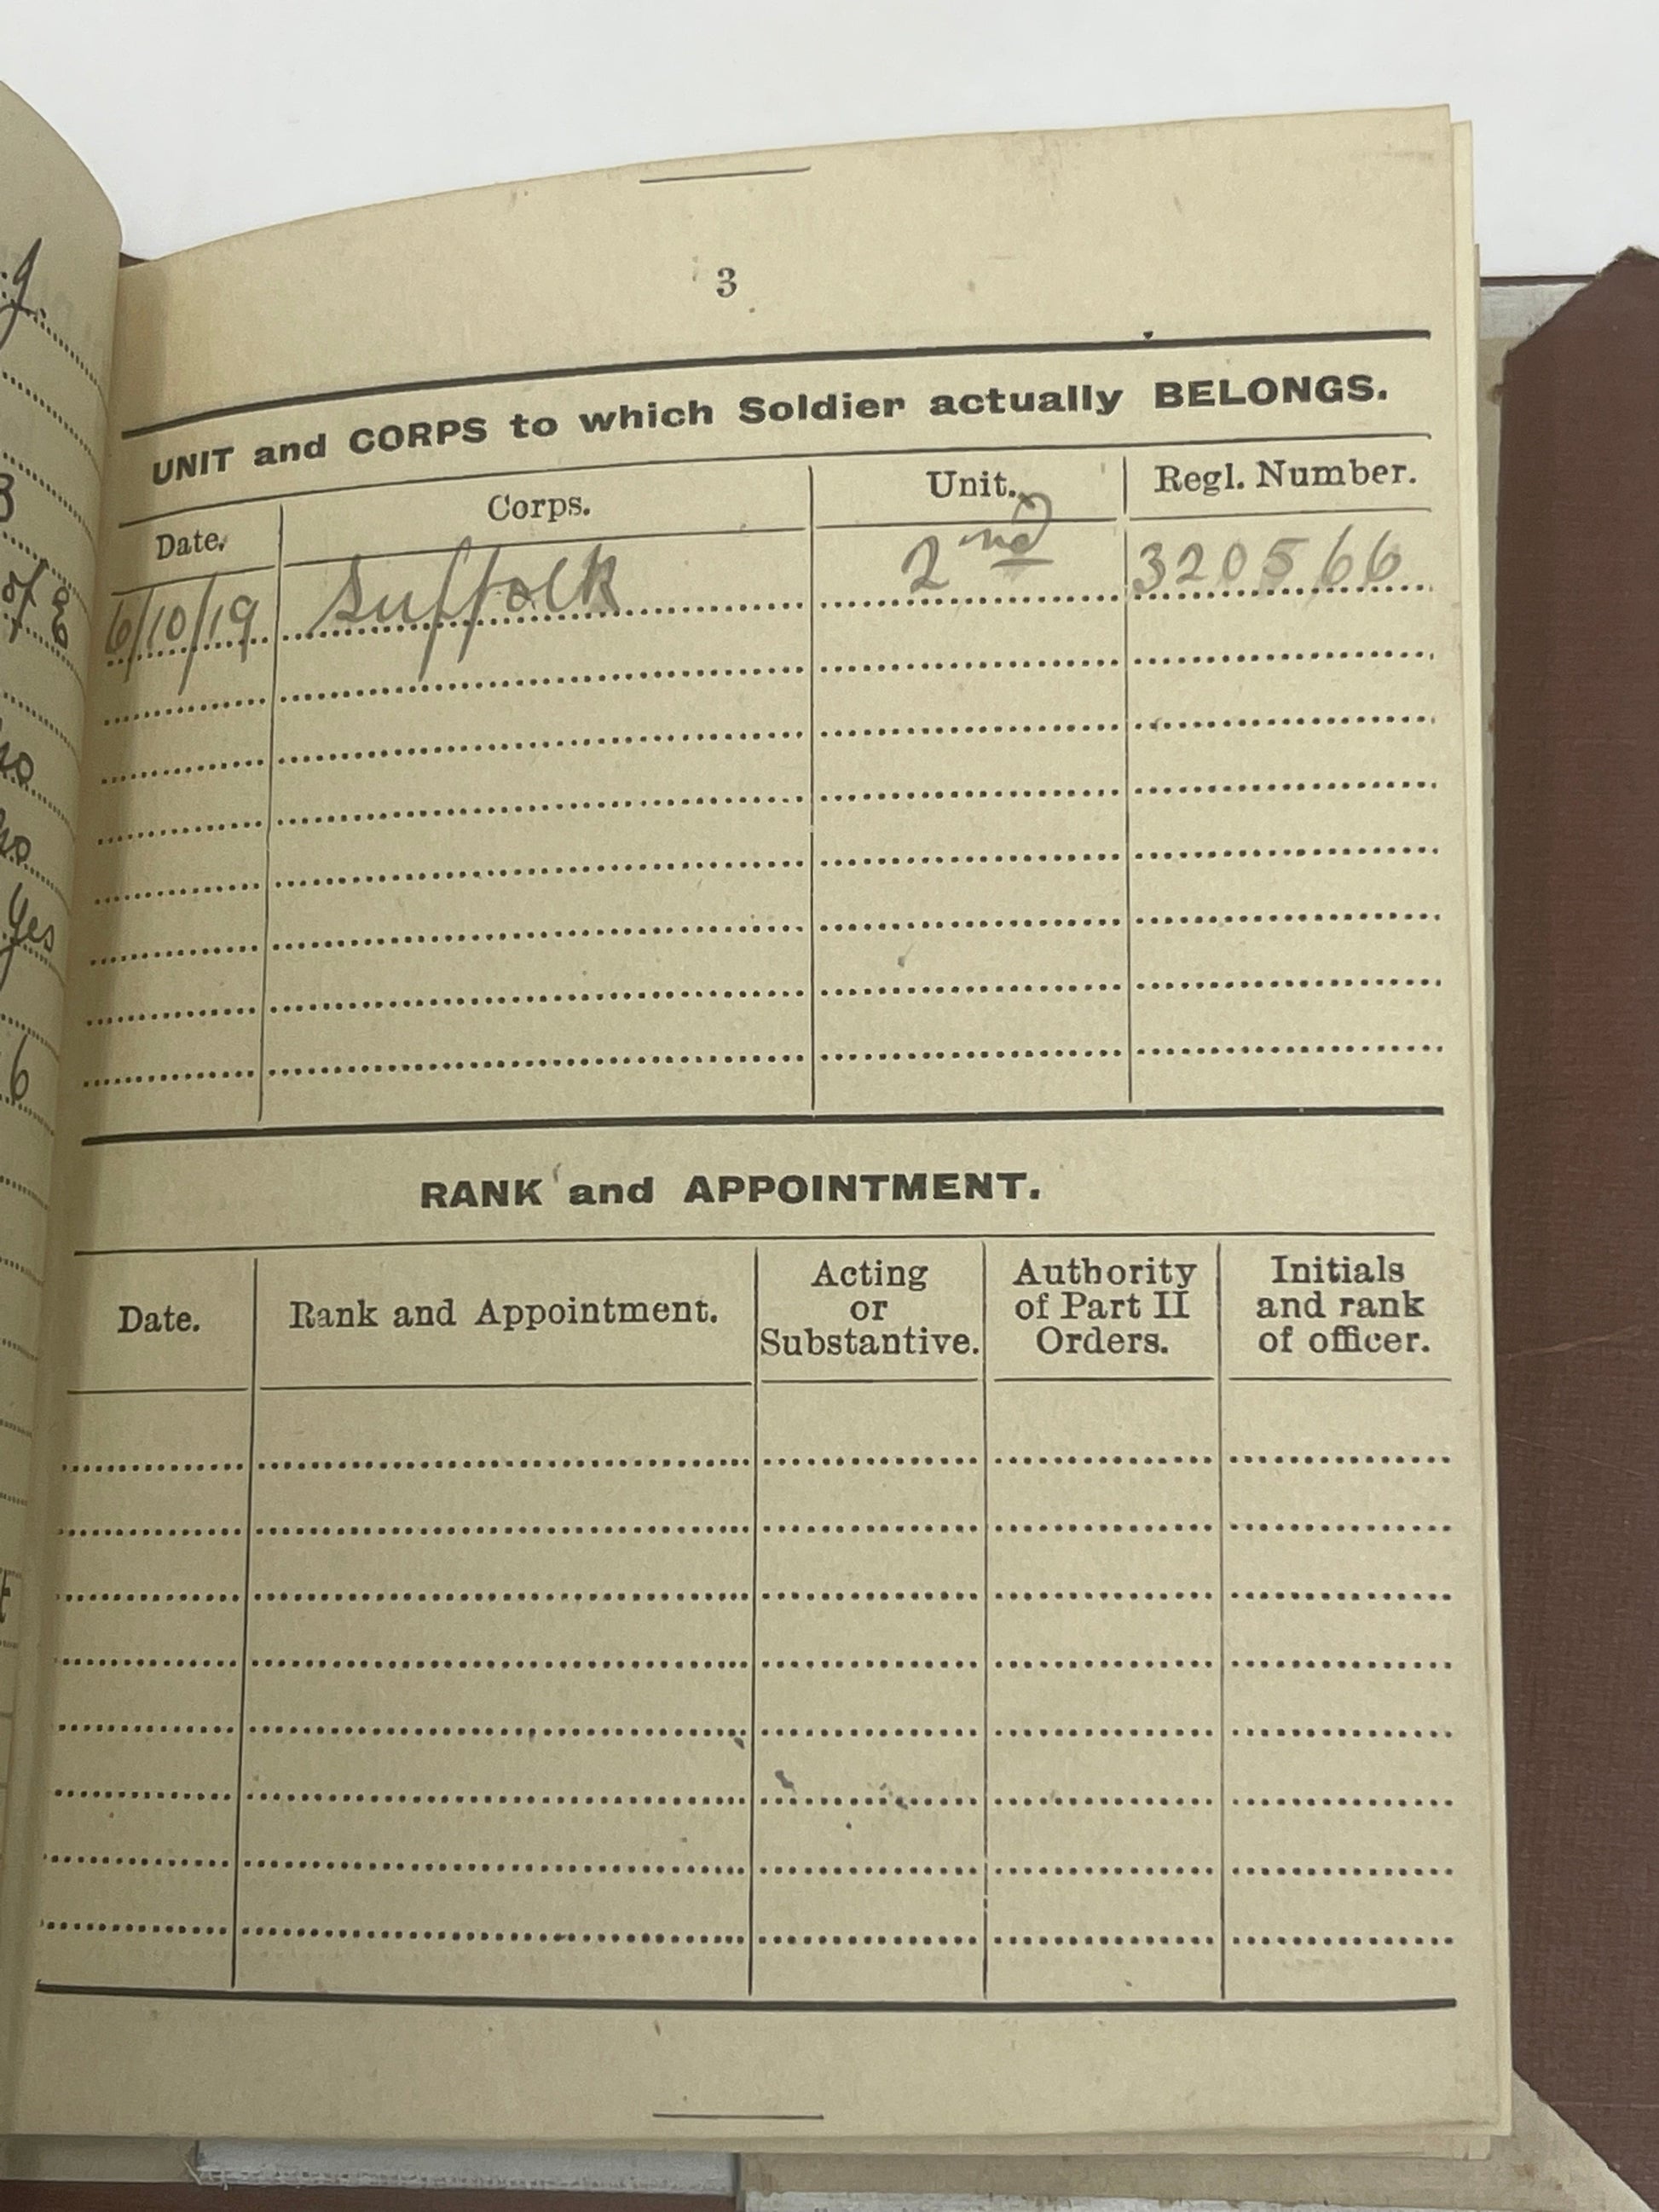 3
UNIT and CORPS to which Soldier actually BELONGS.
Date. Corps. Unit. Regl. Number.
6/10/19 Suffolk 2nd 320566
RANK and APPOINTMENT.
Date. Rank and Appointment. Acting or Substantive. Authority of Part II Orders. Initials and rank of officer.
of E
No
No
Yes
6